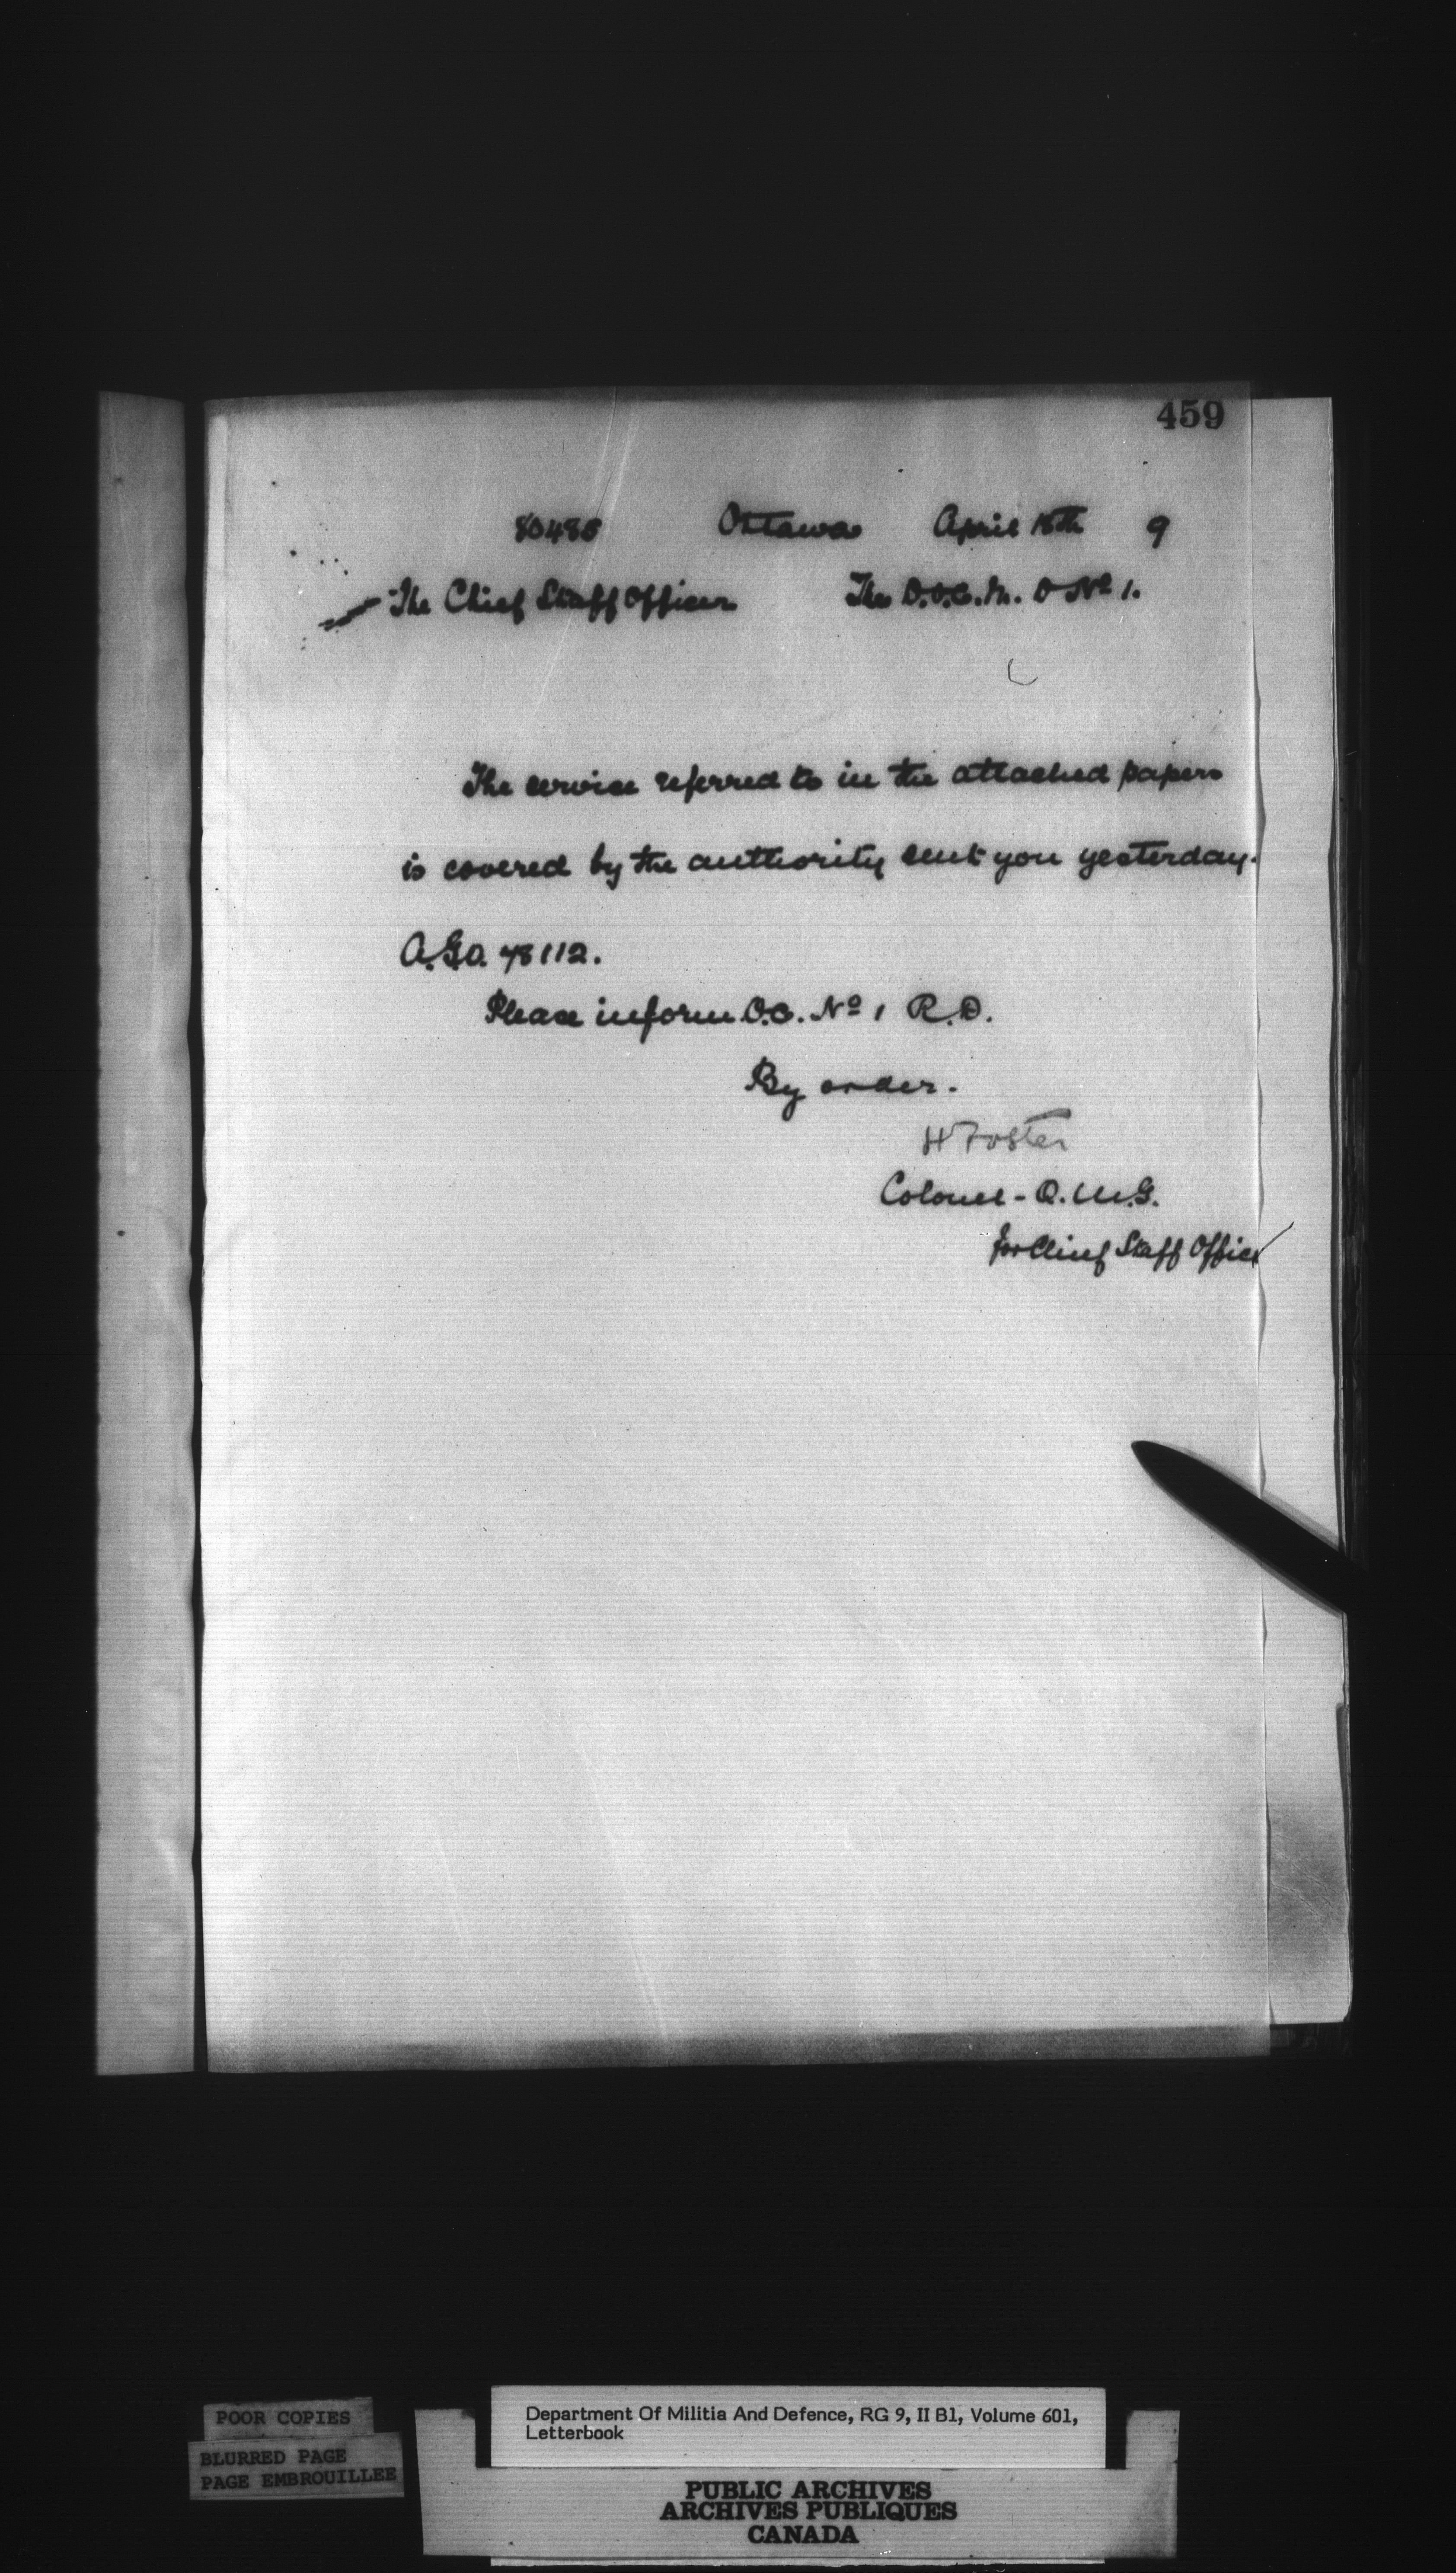 459
Ottawa April 9
The Chief Staff Officer The D.O.C. M. D Nº 1.
The service referred to in the attached papers
is covered by the authority sent you yesterday.
A.G.O. 78112.
Please inform O.C. Nº 1 R.D.
By order.
H Foster
Colonel - Q.M.G.
for Chief Staff Officer
POOR COPIES
BLURRED PAGE
PAGE EMBROUILLEE
Department Of Militia And Defence, RG 9, II B1, Volume 601,
Letterbook
PUBLIC ARCHIVES
ARCHIVES PUBLIQUES
CANADA